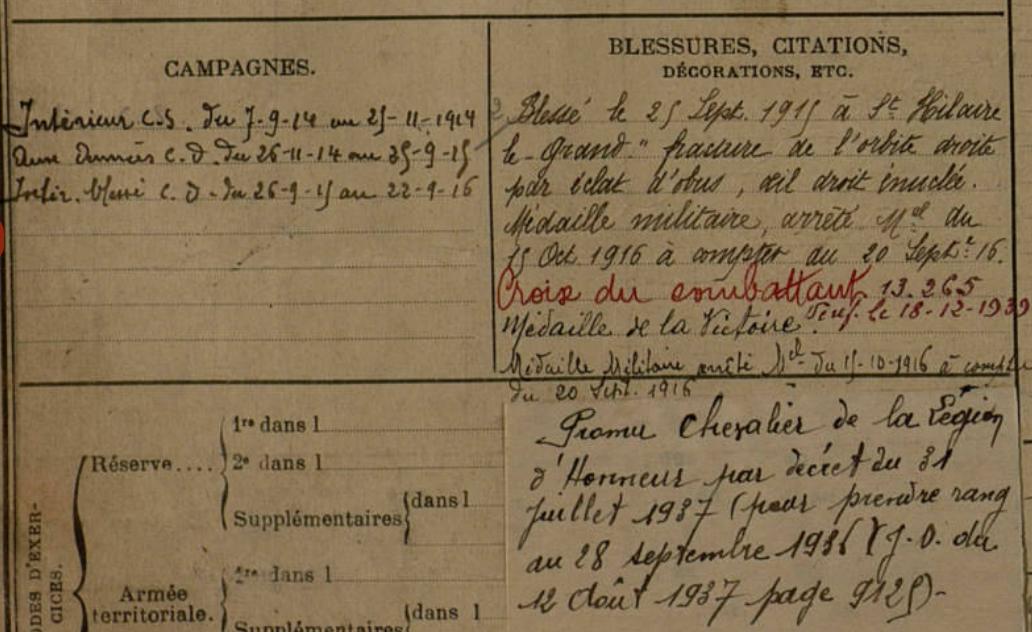 CAMPAGNES.
Intérieur C.S. du 7-9-14 au 25-11-1914
Aux Armées C.D. du 26-11-14 au 25-9-15
Intér. blessé C.D. du 26-9-15 au 22-9-16
BLESSURES, CITATIONS,
DÉCORATIONS, ETC.
Blessé le 25 Sept. 1915 à St Hilaire
le-Grand." fracture de l'orbite droite
par éclat d'obus, œil droit énuclée.
Médaille militaire, arrêté Mel du
15 Oct 1916 à compter du 20 Septre 16.
Croix du combattant 13.265
le 18-12-1939
Médaille de la Victoire.
Médaille Militaire arrêté Mel du 15-10-1916 à compter
du 20 Sept. 1916
Promu Chevalier de la Légion
d'Honneur par décret du 31
juillet 1937 (pour prendre rang
au 28 septembre 1936) (J.O. du
12 Août 1937 page 9125)-
ODES D'EXER-
CICES.
Réserve....
1re dans l
2e dans l
Supplémentaires
dans l
Armée
territoriale.
1re dans l
Supplémentaires
dans l